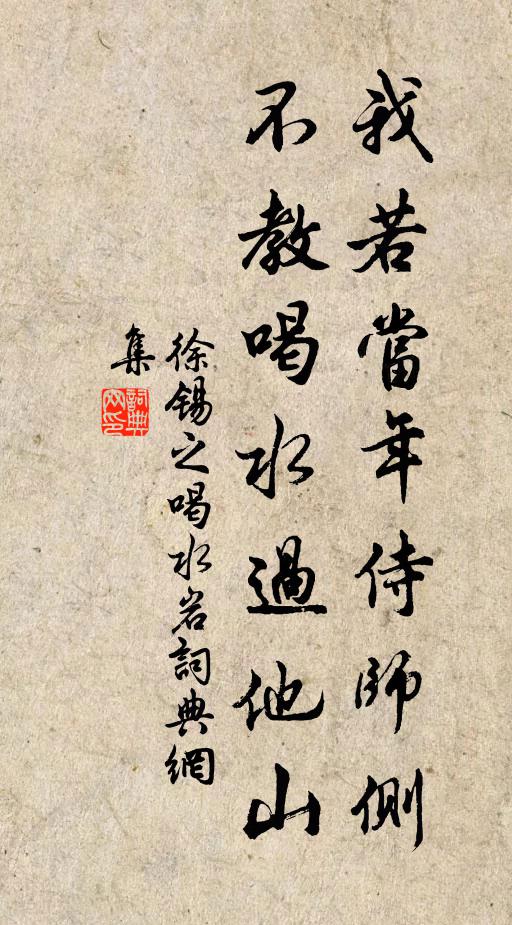 我若當年侍師側
不教喝水過他山
徐錫之喝水岩詞典網
集
詞典
网印